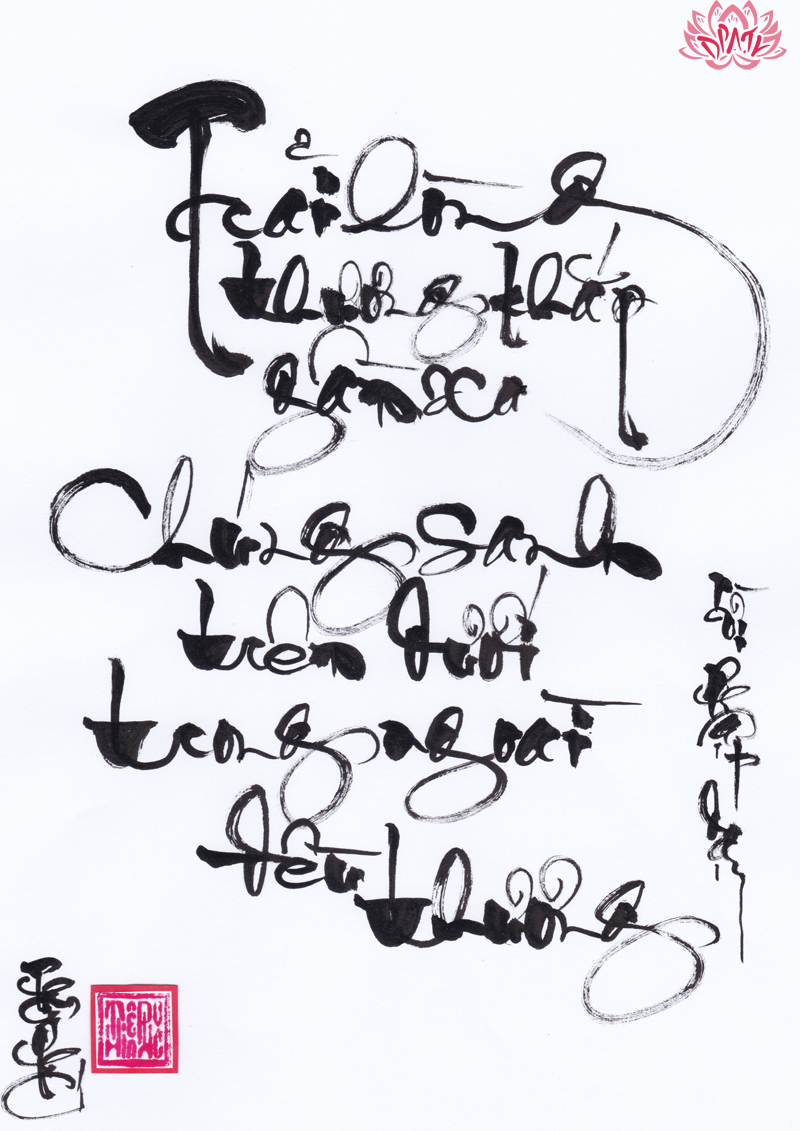 DPATK
Trải lòng
thương khắp
gần xa
Chúng sanh
trên dưới
trong ngoài
đều thương